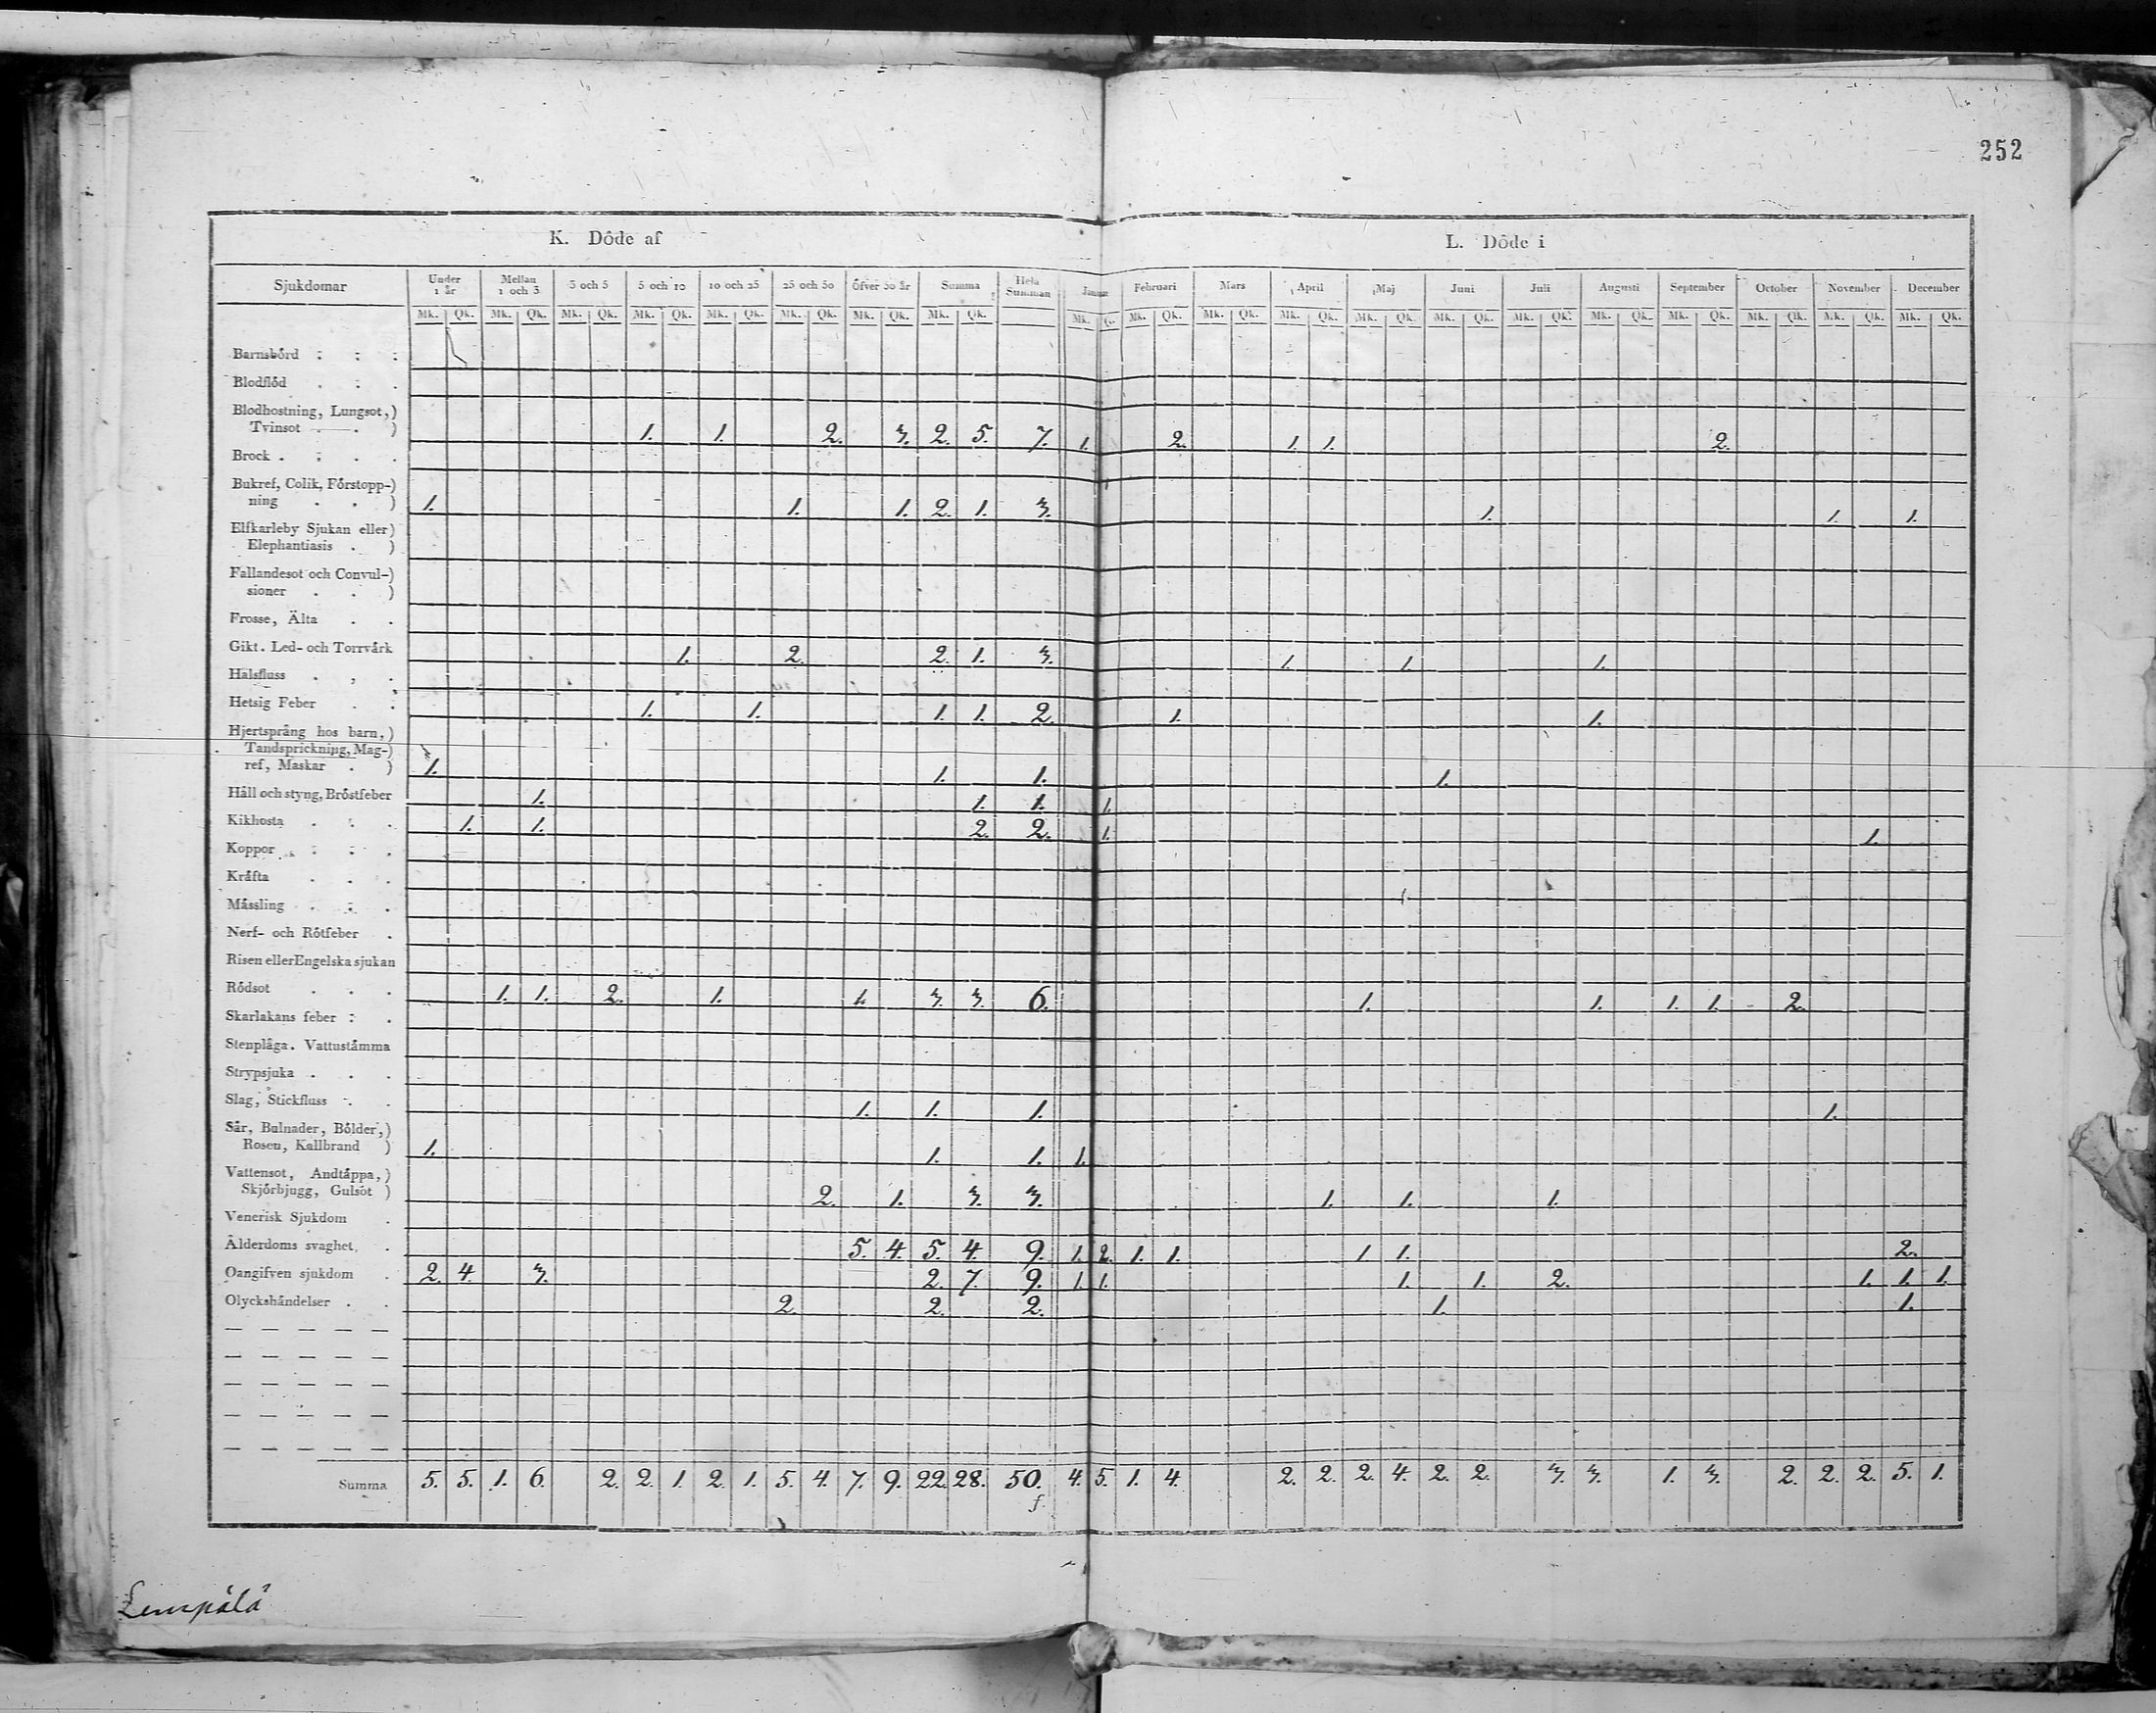 252
K. Döde af L. Döde i
Sjukdomar Under 1 år Mellan 1 och 3 3 och 5 5 och 10 10 och 25 25 och 50 Öfver 50 år Summa Hela Summan Januar Februari Mars April Maj Juni Juli Augusti September October November December
Mk. Qk. Mk. Qk. Mk. Qk. Mk. Qk. Mk. Qk. Mk. Qk. Mk. Qk. Mk. Qk. Mk. Q. Mk. Qk. Mk. Qk. Mk. Qk. Mk. Qk. Mk. Qk. Mk. Qk. Mk. Qk. Mk. Qk. Mk. Qk. Mk. Qk. Mk. Qk.
Barnsbörd
Blodflöd
Blodhostning, Lungsot,)
Tvinsot ) 1. 1. 2. 3. 2. 5. 7. 1. 2. 1. 1. 2.
Brock
Bukref, Colik, Förstopp-)
ning ) 1. 1. 1. 2. 1. 3. 1. 1. 1.
Elfkarleby Sjukan eller)
Elephantiasis )
Fallandesot och Convul-)
sioner )
Frosse, Älta
Gikt. Led- och Torrvärk 1. 2. 2. 1. 3. 1. 1. 1.
Halsfluss
Hetsig Feber 1. 1. 1. 1. 2. 1. 1.
Hjertsprång hos barn,)
Tandsprickning, Mag-)
ref, Maskar ) 1. 1. 1. 1.
Håll och styng, Bröstfeber 1. 1. 1. 1.
Kikhosta 1. 1. 2. 2. 1. 1.
Koppor
Kräfta
Mässling
Nerf- och Rötfeber
Risen eller Engelska sjukan
Rödsot 1. 1. 2. 1. 1. 3. 3. 6. 1. 1. 1. 1. 2.
Skarlakans feber
Stenplåga. Vattustämma
Strypsjuka
Slag, Stickfluss 1. 1. 1. 1.
Sår, Bulnader, Bölder,)
Rosen, Kallbrand ) 1. 1. 1. 1.
Vattensot, Andtäppa,)
Skjörbjugg, Gulsot ) 2. 1. 3. 3. 1. 1. 1.
Venerisk Sjukdom
Ålderdoms svaghet 5. 4. 5. 4. 9. 1. 2. 1. 1. 1. 1. 2.
Oangifven sjukdom 2. 4. 3. 2. 7. 9. 1. 1. 1. 1. 2. 1. 1. 1.
Olyckshändelser 2. 2. 2. 1. 1.
Summa 5. 5. 1. 6. 2. 2. 1. 2. 1. 5. 4. 7. 9. 22. 28. 50. 4. 5. 1. 4. 2. 2. 2. 4. 2. 2. 3. 3. 1. 3. 2. 2. 2. 5. 1.
f.
Lempälä